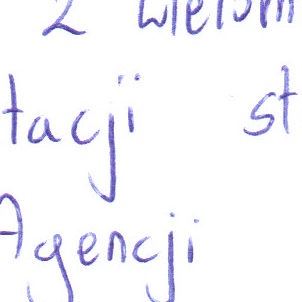 z wielom
tacji st
Agencji